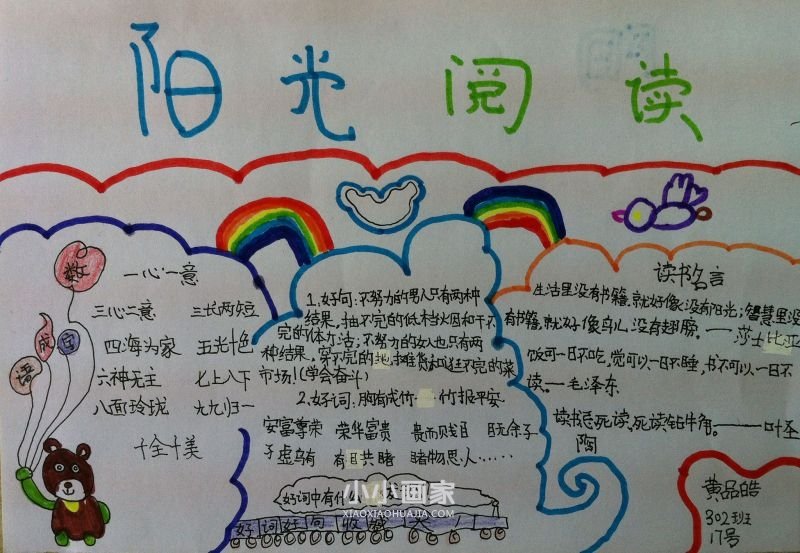 阳光阅读
数
字
成
语
一心一意
三心二意 三长两短
四海为家 五光十色
六神无主 七上八下
八面玲珑 九九归一
十全十美
1、好句:不努力的男人只有两种
结果,抽不完的低档火因和干不
完的体力活;不努力的女人也只有两
种结果,穿不完的地摊货和逛不完的菜
市场!(学会奋斗)
2、好词:胸有成竹 竹报平安
安富尊荣 荣华富贵 贵而贱目 目无余子
子虚乌有 有目共睹 睹物思人……
好词中有什么
好词好句收藏大
读书名言
生活里没有书籍,就好像没有阳光;智慧里没
有书籍,就好像鸟儿没有翅膀。——莎士比亚
饭可一日不吃,觉可以一日不睡,书不可以一日不
读。——毛泽东
读书忌死读,死读钻牛角。——叶圣
陶
黄品皓
302班
17号
小小画家
XIAOXIAOHUAJIA.COM